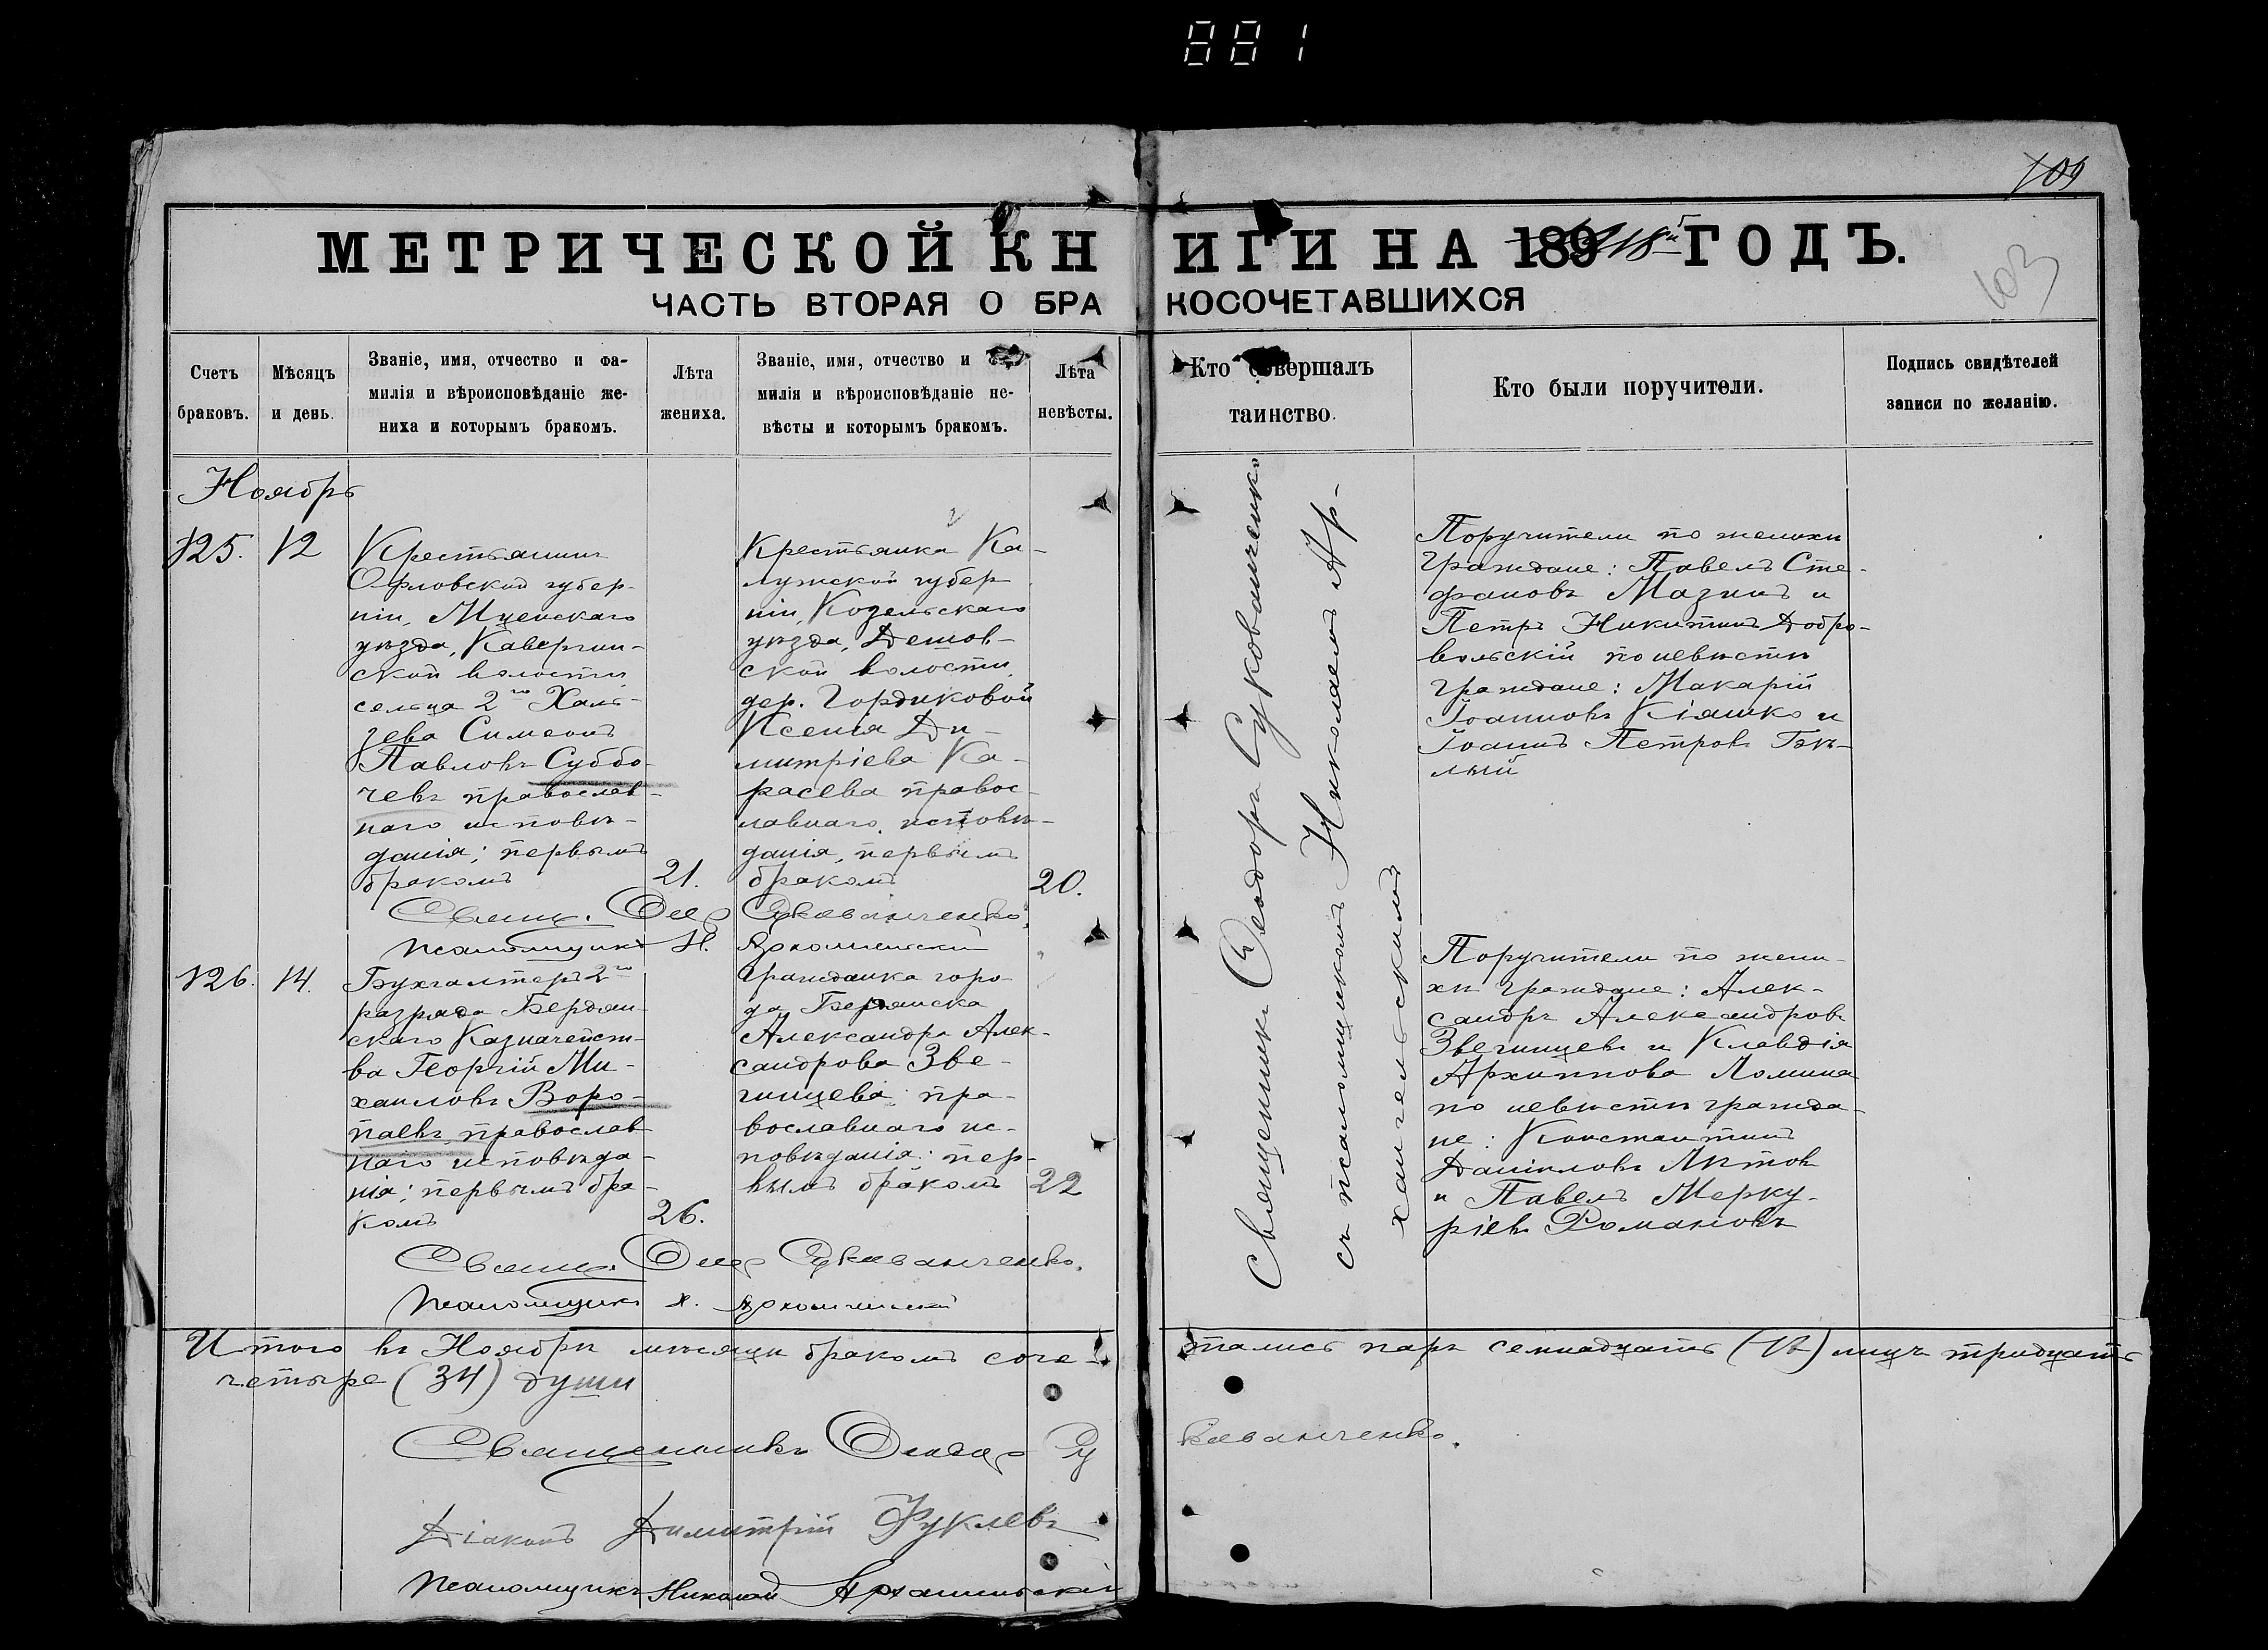 881
109
МЕТРИЧЕСКОЙ КНИГИ НА 1918й ГОДЪ.
103
ЧАСТЬ ВТОРАЯ О БРАКОСОЧЕТАВШИХСЯ
Счетъ браковъ.
Мѣсяцъ и день.
Званіе, имя, отчество и фа-
милія и вѣроисповѣданіе же-
ниха и которымъ бракомъ.
Лѣта жениха.
Званіе, имя, отчество и фа-
милія и вѣроисповѣданіе не-
вѣсты и которымъ бракомъ.
Лѣта невѣсты.
Кто совершалъ
таинство.
Кто были поручители.
Подпись свидѣтелей
записи по желанію.
Ноябрь
125.
12
Крестьянинъ
Орловской губер-
ніи, Мценскаго
уѣзда, Каверин-
ской волости,
сельца 2го Халь-
зева Симеонъ
Павловъ Суббо-
чевъ православ-
наго исповѣ-
данія; первымъ
бракомъ
21.
Крестьянка Ка-
лужской губер
ніи, Козельскаго
уѣзда, Дешов-
ской волости,
дер. Гордиковой
Ксенія Ди-
митріева Ка-
расева правос-
лавнаго исповѣ-
данія, первымъ
бракомъ
20.
Священникъ Ѳеодоръ Сукованченко
съ псаломщикомъ Николаемъ Ар-
хангельскимъ
Поручители по женихѣ
граждане: Павелъ Сте-
фановъ Мазинъ и
Петръ Никитинъ Добро-
вольскій по невѣстѣ
граждане: Макарій
Іоанновъ Кіяшко и
Іоаннъ Петровъ Бѣ-
лый
Свящ. Ѳеод Сукованченко.
Псаломщикъ Н. Архангельскій
126.
14.
Бухгалтеръ 2го
разряда Бердян-
скаго Казначейст-
ва Георгій Ми-
хаиловъ Воро-
паевъ, православ
наго исповѣда-
нія; первымъ бра-
комъ
26.
Гражданка горо-
да Бердянска
Александра Алек-
сандрова Зве-
гинцева; пра-
вославнаго ис-
повѣданія; пер-
вымъ бракомъ
22
Поручители по жени-
хѣ граждане: Алек-
сандръ Александровъ
Звегинцевъ и Клавдія
Архиппова Ломина
по невѣстѣ гражда-
не: Константинъ
Даніиловъ Лктов
и Павелъ Мерку-
ріевъ Романовъ
Свящ. Ѳеод Сукованченко.
Псаломщикъ Н. Архангельскій
Итого въ Ноябрѣ мѣсяцѣ бракомъ соче-тались паръ семнадцать (17) лицъ тридцать
четыре (34) души
Священникъ Ѳеодоръ Сукованченко.
Діаконъ Димитрій Фуклевъ
Псаломщикъ Николай Архангельскій